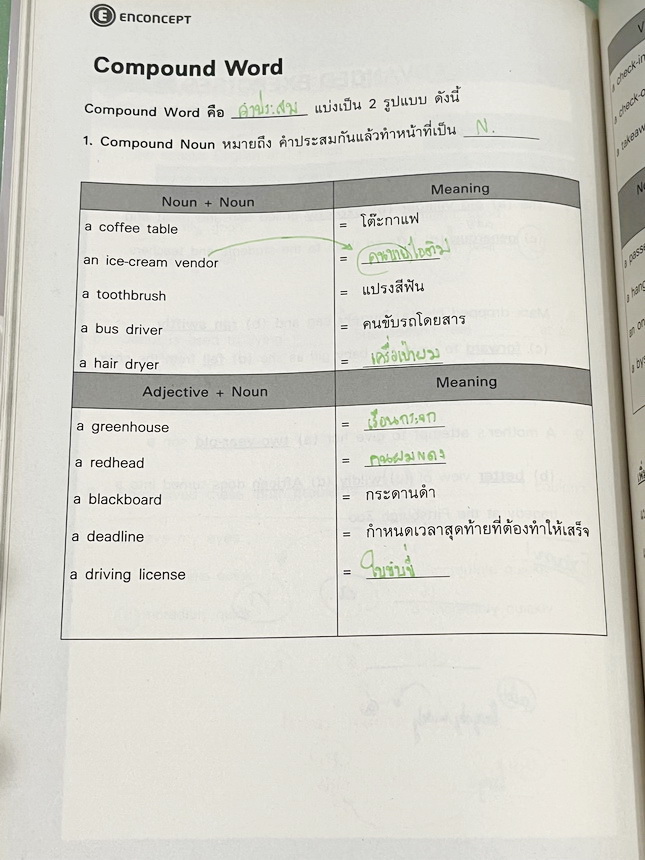 E ENCONCEPT
Compound Word
Compound Word คือ คำประสม แบ่งเป็น 2 รูปแบบ ดังนี้
1. Compound Noun หมายถึง คำประสมกันแล้วทำหน้าที่เป็น N.
Noun + Noun Meaning
a coffee table = โต๊ะกาแฟ
an ice-cream vendor = คนขายไอติม
a toothbrush = แปรงสีฟัน
a bus driver = คนขับรถโดยสาร
a hair dryer = เครื่อเป่าผม
Adjective + Noun Meaning
a greenhouse = เรือนกระจก
a redhead = คนผมแดง
a blackboard = กระดานดำ
a deadline = กำหนดเวลาสุดท้ายที่ต้องทำให้เสร็จ
a driving license = ใบขับขี่
a check-in
a check-o
a takeaw
a passe
a hang
an on
a bys